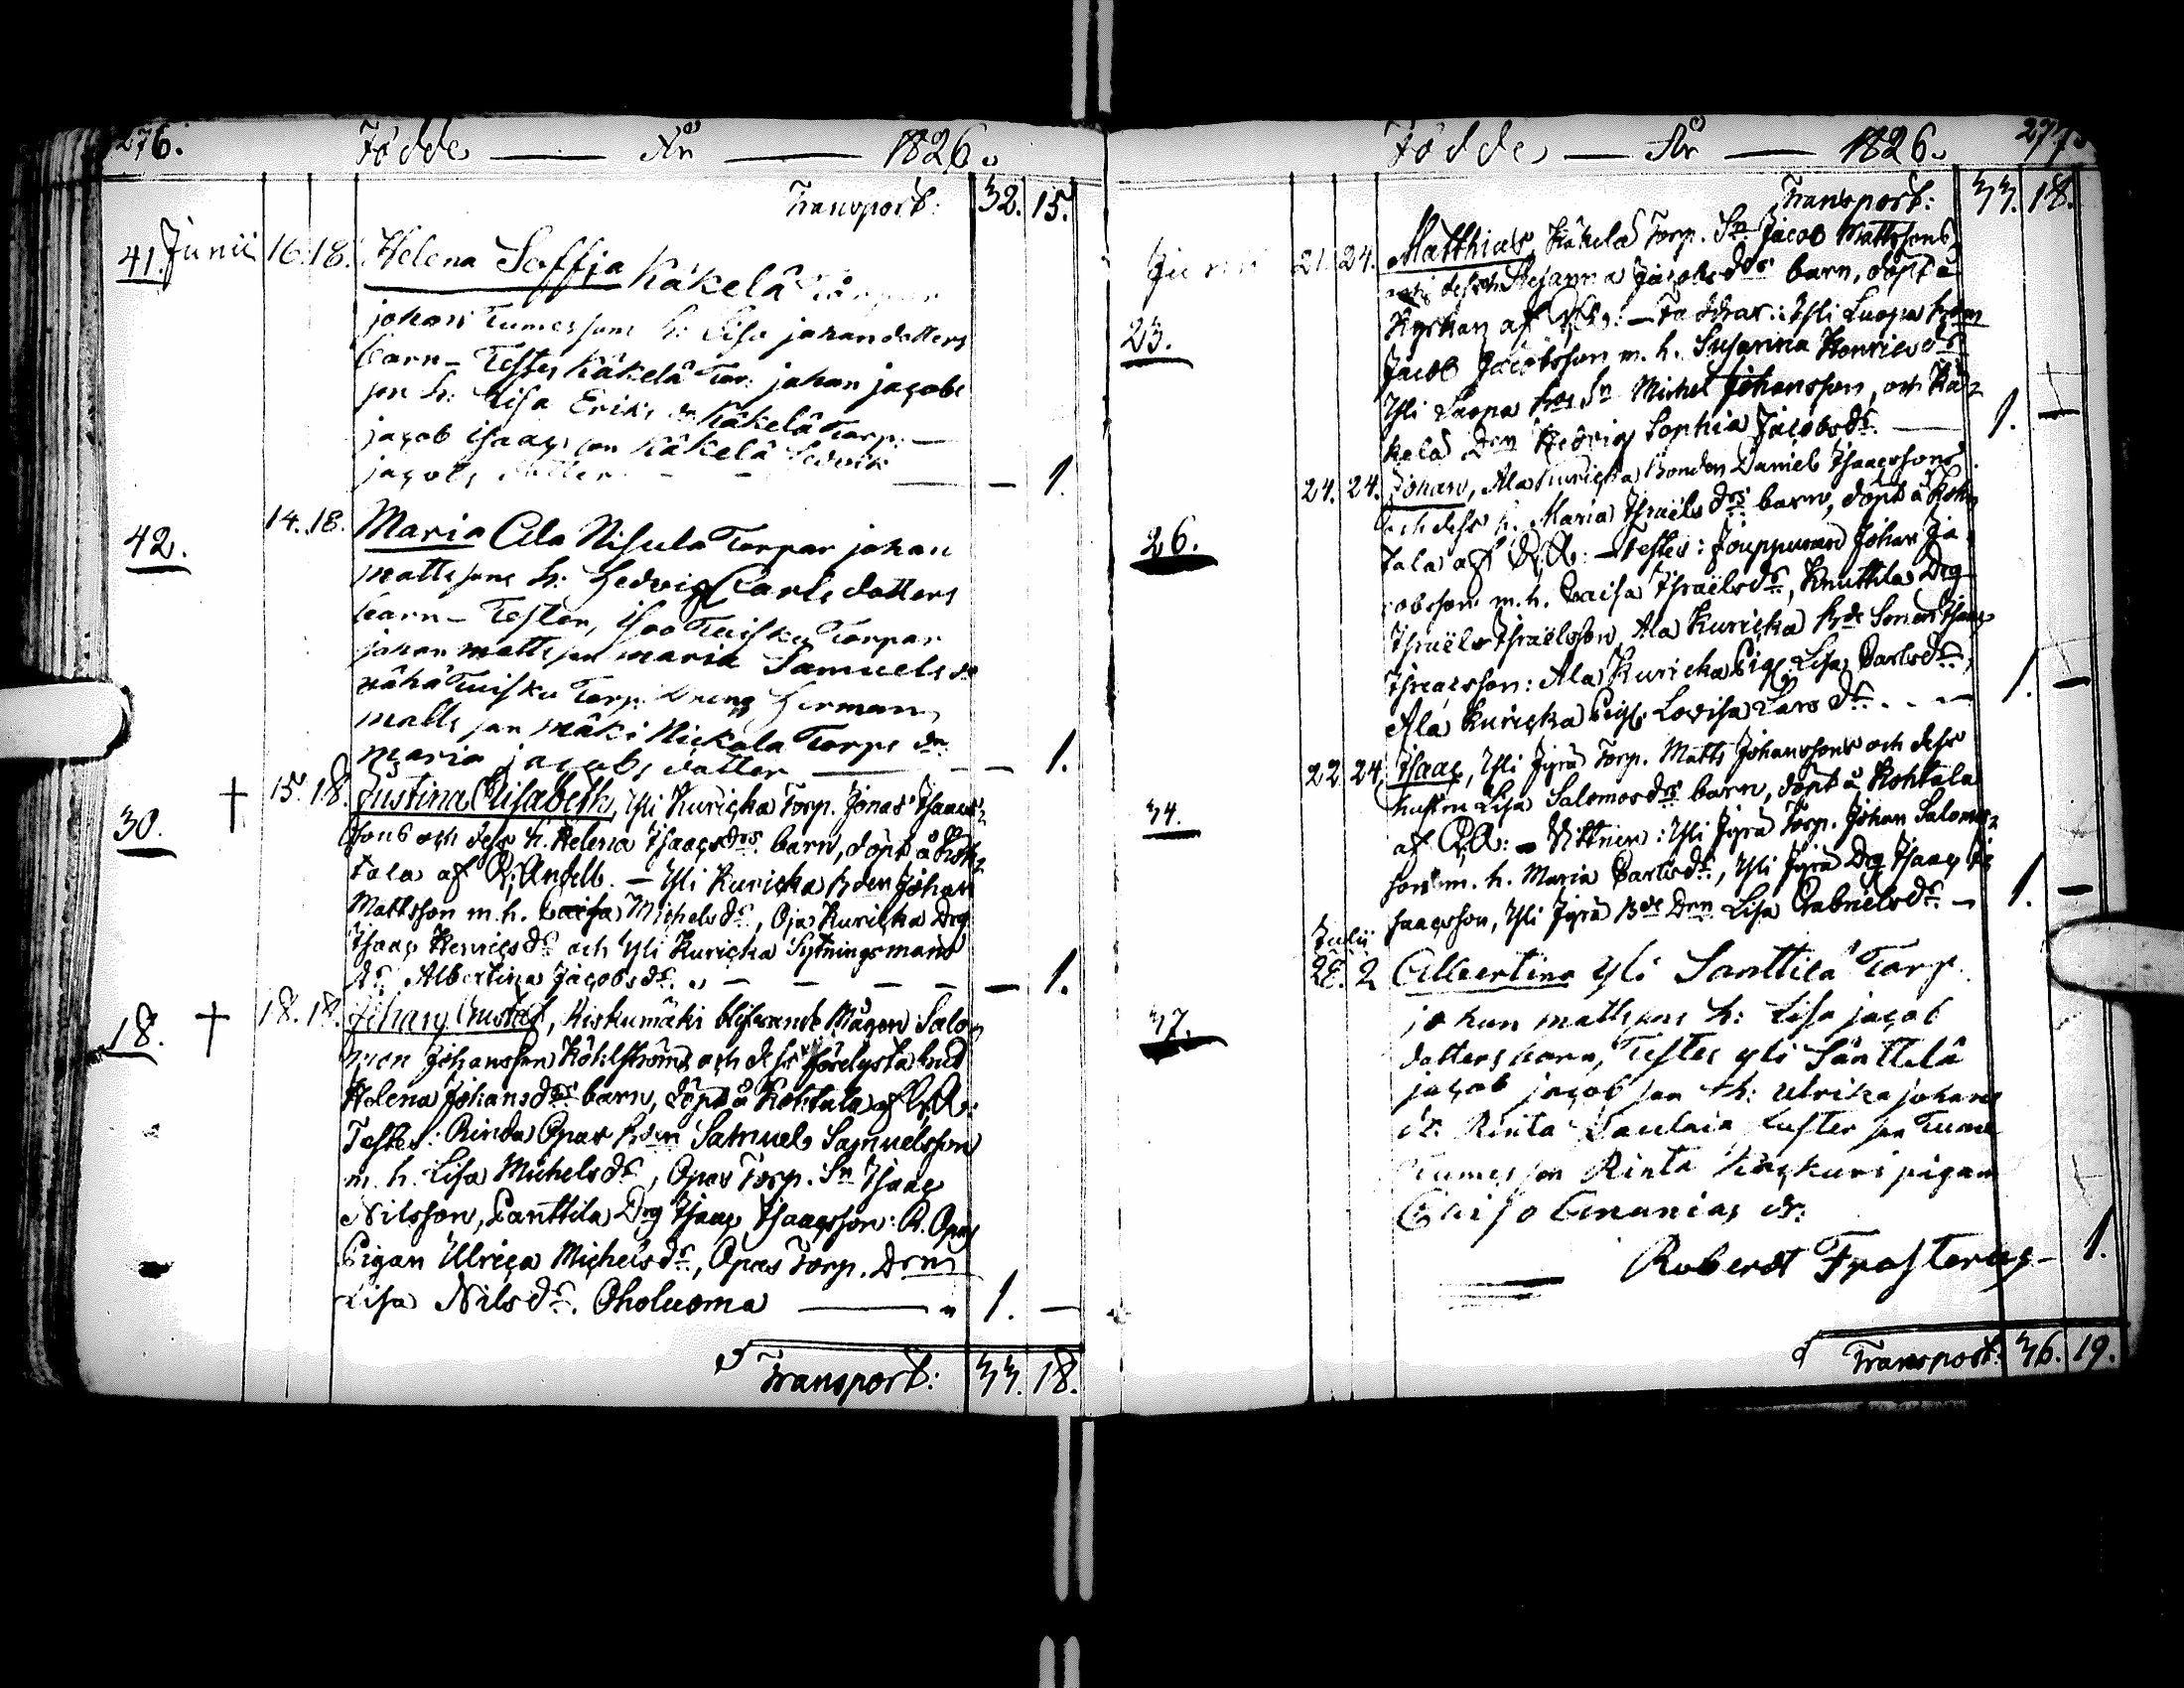 276.
Födde — År — 1826.
Transport: 32. 15.
41. Junii 16. 18. Helena Soffia Käkelä
johan Tumessons h: Lisa johandotters
barn – Testes Käkelä Tor: johan jacobs
son h: Lisa Eriks dr Käkelä Torp. —
jacob isaacs son Käkelä hedvik
jacobs dotter — — — 1.
42. 14. 18. Maria Ala Nisula Torpar johan
matts sons h: Hedvig Carls dotters
barn – Testes, isoo Tuisku Torpar
johan matts son maria Samuels dr
vähä Tuisku Torp. Dreng Herman
matts son mäki Nickola Torps dr
maria jacobs dotter — — 1.
30. † 15. 18. Justina Elisabeth, Yli Kuricka Torp. Jonas Isaacs-
sons och dess h. Helena Isaacsdrs barn, döpt å Koh-
tala af R. Andell. — Yli Kuricka Bden Johan
Mattsson m. h. Caisa Michelsdr, Oja Kuricka Drg
Isaac Henricsdr och Yli Kuricka Sytningsmans
dr Albertina Jacobsdr. — — — — 1.
18. † 18. 18. Johan Gustaf, Kiskumäki blifvande Mågen Salo-
mon Johansson Köhlströms och dess förelofsta hud
Helena Johansdrs barn, döpt å Kohtala af R.A:
Testes: Rinda Opas Bden Samuel Samuelsson
m. h. Lisa Michelsdr, Opas Torp. Sn Isaac
Nilsson, Panttila Drg Isaac Isaacsson: R. Opas
Pigan Ulrica Michelsdr, Opas Torp. Drn
Lisa Nilsdr. Oholuoma — 1. —
Transport: 33. 18.
277.
Födde — År — 1826.
Transport: 33. 18.
Junii 21. 24. Matthias, Käkelä Torp. Sn Jacob Mattssons
och dess h. Susanna Jacobsdrs barn, döpt å
23. Kyrkan af — Faddrar: Yli Luopa Bden
Jacob Jacobsson m. h. Susanna Henricsdr
Yli Luopa Bds Sn Michel Johansson, och Kä-
kelä Drn Hedvig Sophia Jacobsdr. — 1. —
24. 24. Johan, Ala Kuricka Bonden Daniel Isaacssons
och dess h. Maria Israelsdrs barn, döpt å Koh-
26. tala af R.A: — Testes: Jouppuran Johan Ja-
cobsson m. h. Caisa Israelsdr, Knuttila Drg
Israel Israelsson, Ala Kuricka Bds Sonen Isaac
Isacsson: Ala Kuricka Pig. Lisa Carlsdr,
Ala Kuricka Pig. Lovisa Lars dr. — 1. —
22. 24. Isaac, Yli Jyrä Torp. Matts Johanssons och dess
hustru Lisa Salomosdrs barn, döpt å Kohtala
34. af R.A: — Vittnen: Yli Jyrä Torp. Johan Salomos-
son m. h. Maria Carlsdr, Yli Jyrä Drg Isaac I-
saacsson, Yli Jyrä Bds Drn Lisa Gabrielsdr. — 1. —
Julii
28. 2. Albertina Yli Santtila Torp.
37. johan matts sons h: Lisa jacob
dotters barn, Testes yli Santtila
jacob jacob son h: ulrika johans
dr. Rinta Paulaia Tume
Tumes son Rinta Käckuri pigan
Caisa Ananias dr.
Roberdt Frosterus — 1.
Transport: 36. 19.